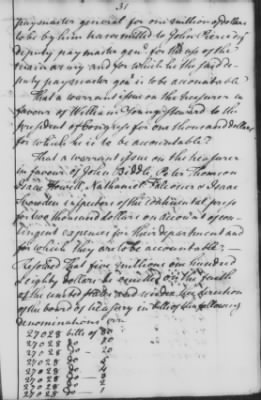 31
paymaster general for one million of dollars
to be by him transmitted to John Pierce esqr
deputy paymaster genl for the use of the
main army and for which he the said de-
puty paymaster genl is to be accountable:
That a warrant issue on the treasurer in
favour of William Young steward to the
president of Congress for one thousand dollars
for which he is to be accountable:
That a warrant issue on the treasurer
in favour of John Biddle, Peter Thomson
Isaac Howell, Nathaniel Falconer & Isaac
Snowden inspectors of the continental press
for two thousand dollars on account of con-
tingent expences for their department and
for which they are to be accountable:
Resolved That five millions one hundred
& eighty dollars be emitted on the faith
of the United States and under the direction
of the board of treasury in bills of the following
denominations viz
27028 bills of 80
27028 do 70
27028 do 20
27028 do 5
27028 do 4
27028 do 3
27028 do 2
27028 do 1